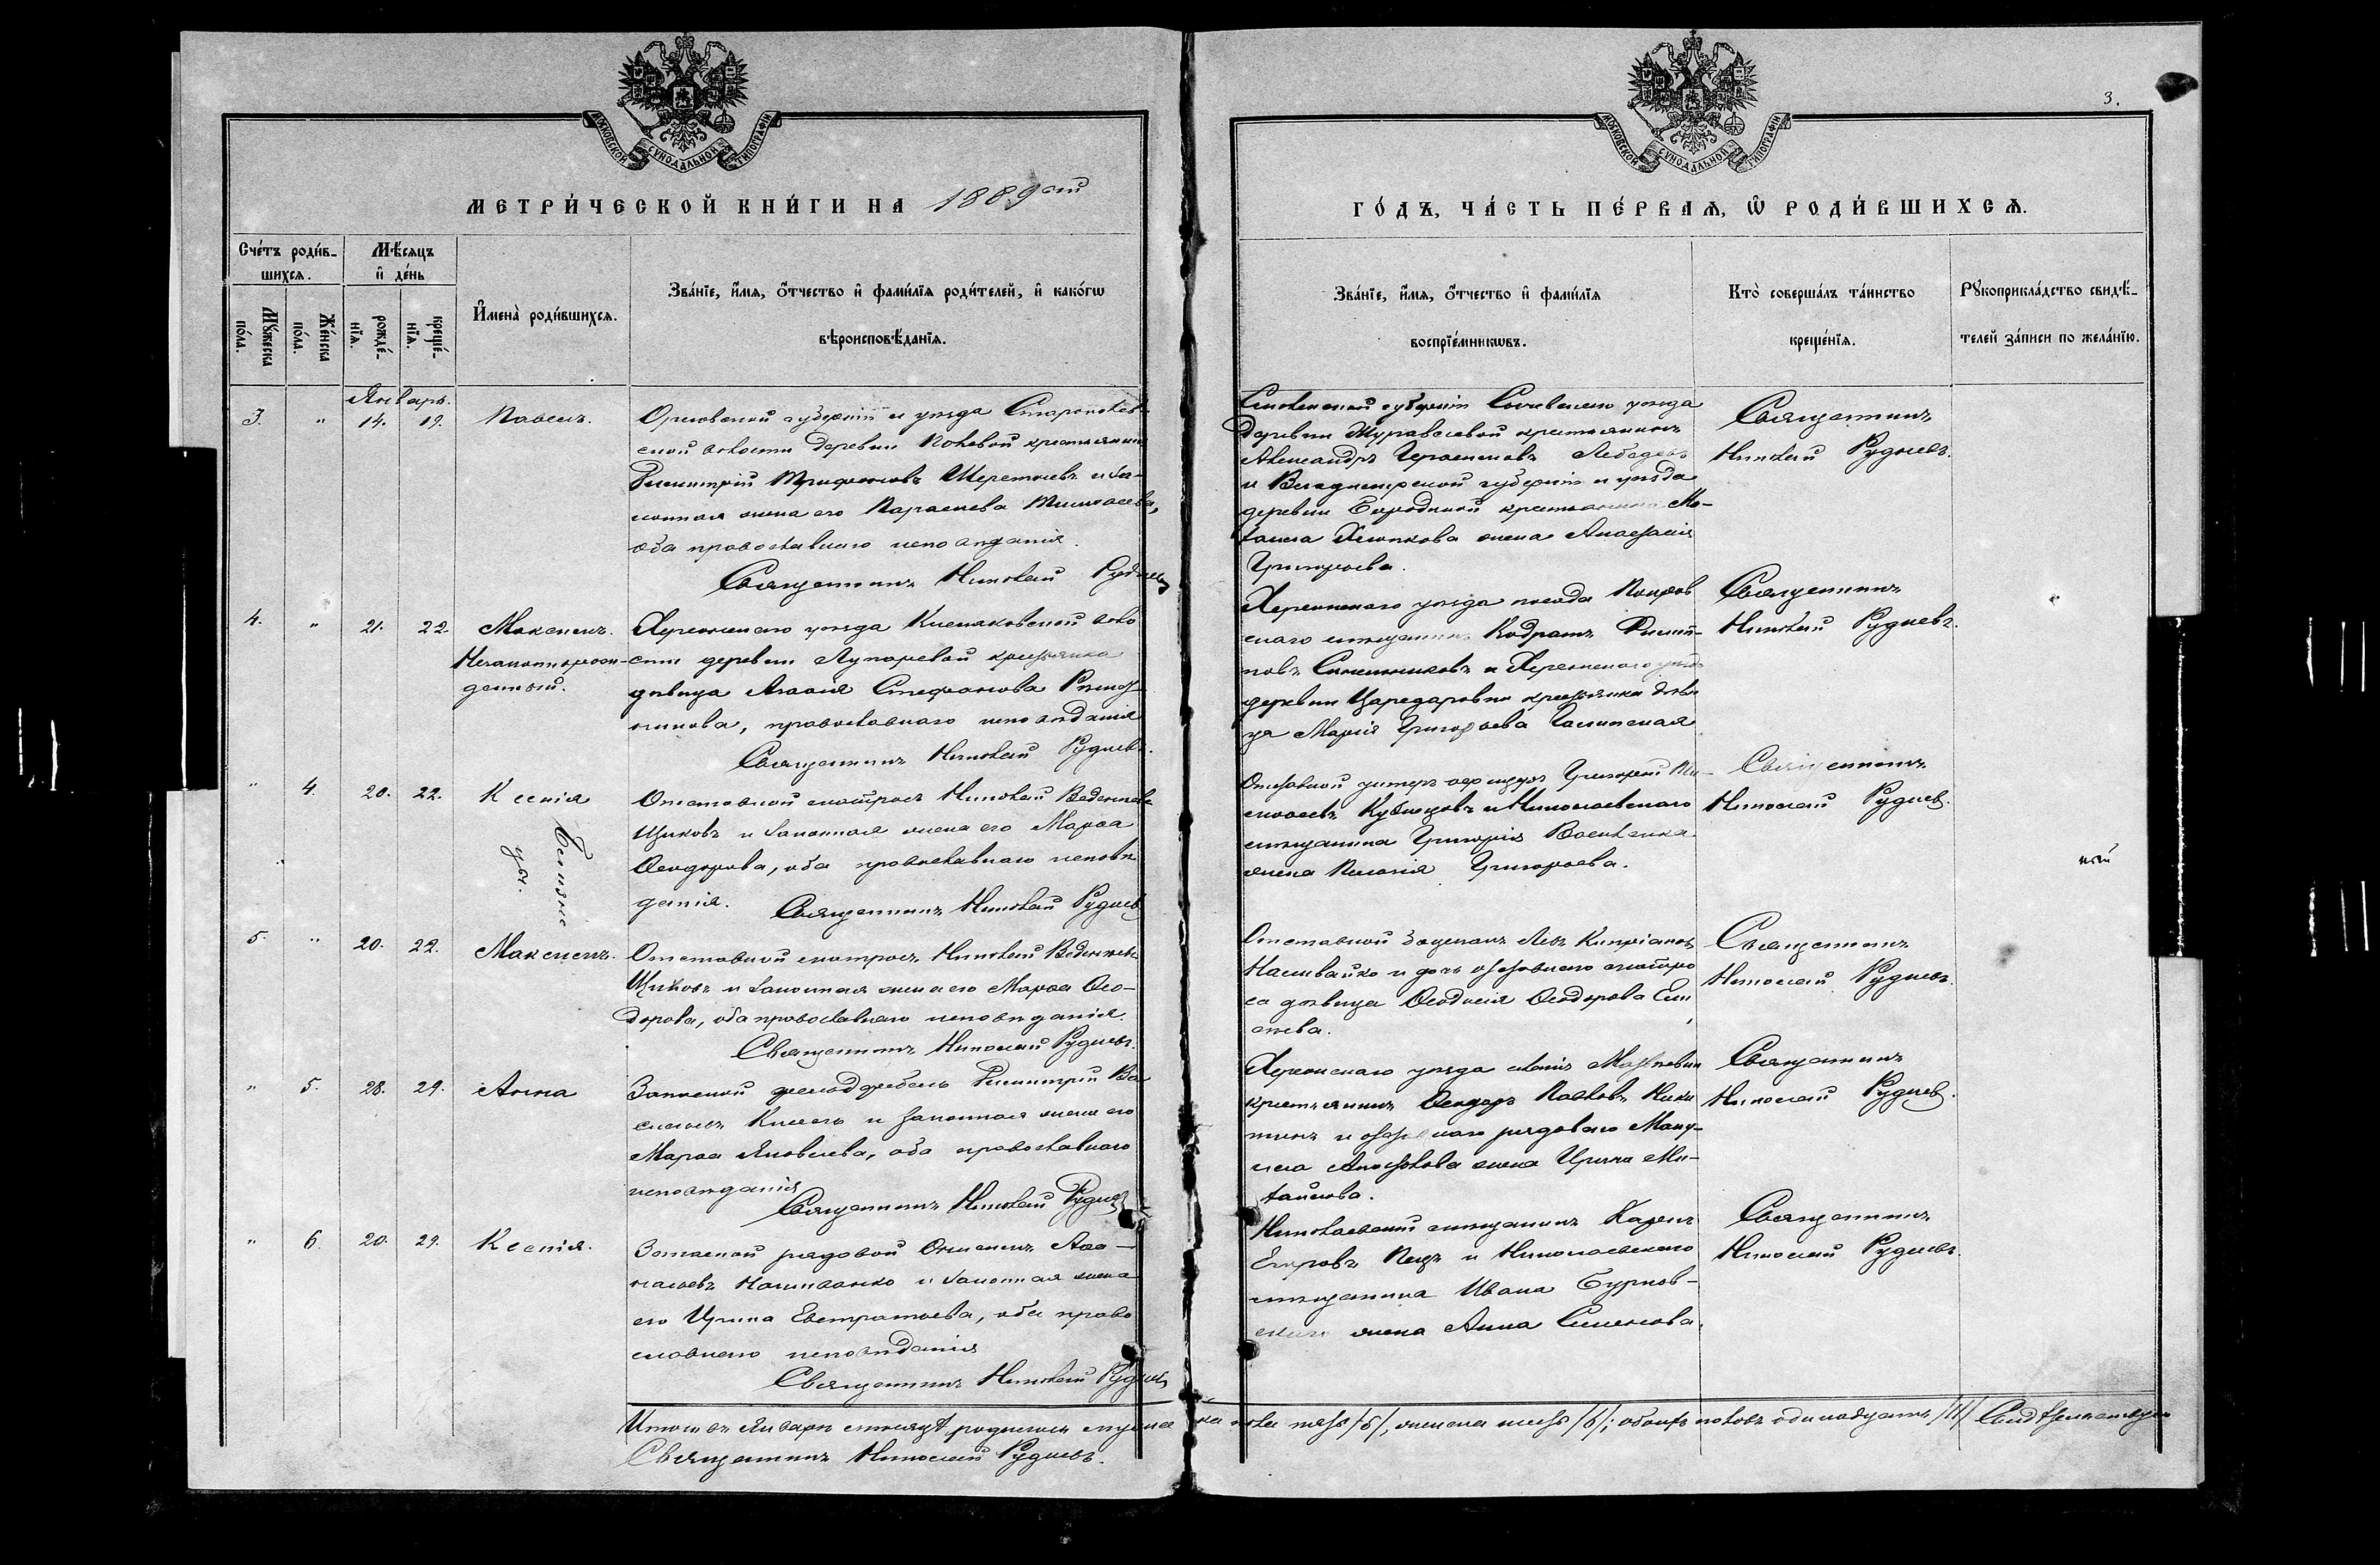 МОСКОВСКОЙ СУНОДАЛЬНОЙ ТИПОГРАФІИ
МЕТРИ́ЧЕСКОЙ КНИ́ГИ НА 1889ый
Сче́тъ роди́в-
шихсѧ.
Мꙋ́жеска
по́ла.
Же́нска
по́ла.
Мѣ́сѧцъ
и҆ де́нь
рожде́-
нїѧ.
креще́-
нїѧ.
И҆мена̀ роди́вшихсѧ.
Зва́нїе, и҆́мѧ, ѻ҆́тчество и҆ фами́лїѧ роди́телей, и҆ како́гѡ
вѣроисповѣ́данїѧ.
Январь.
3. " 14. 19. Павелъ.
Орловской губерніи и уѣзда
волости деревни крестьянинъ
Димитрій Трифоновъ Шереметьевъ и за-
конная жена его Параскева
оба православнаго исповѣданія.
Священникъ Николай Рудневъ
4. " 21. 22. Максимъ.
Незаконнорож-
денный.
Херсонскаго уѣзда Кисляковской воло
сти деревни Лупаревой крестьянка
дѣвица Стефанова
православнаго исповѣданія
Священникъ Николай Рудневъ.
" 4. 20. 22. Ксенія
Близне
цы.
Отставной матросъ Николай
Щуковъ и законная жена его Марѳа
Ѳеодорова, оба православнаго исповѣ
данія. Священникъ Николай Рудневъ
5. " 20. 22. Максимъ.
Отставной матросъ Николай
Щуковъ и законная жена его Марѳа Ѳео-
дорова, оба православнаго исповѣданія.
Священникъ Николай Рудневъ.
" 5. 28. 29. Анна
Запасной фельдфебель Димитрій Ва
сильевъ и законная жена его
Марѳа Яковлева, оба православнаго
исповѣданія
Священникъ Николай Рудневъ
" 6. 20. 29. Ксенія.
Запасной рядовой Аѳа-
насьевъ и законная жена
его Ирина Евстратьева, оба право
славнаго исповѣданія
Священникъ Николай Рудневъ
3.
МОСКОВСКОЙ СУНОДАЛЬНОЙ ТИПОГРАФІИ
ГО́ДЪ, ЧА́СТЬ ПЕ́РВАѦ, Ѽ РОДИ́ВШИХСѦ.
Зва́нїе, и҆́мѧ, ѻ҆́тчество и҆ фами́лїѧ
воспрїе́мникѡвъ.
Кто̀ соверша́лъ та́инство
креще́нїѧ.
Рꙋкоприкла́дство свидѣ́-
телей за́писи по жела́нїю.
Смоленской губерніи Сычевскаго уѣзда
деревни Журавлевой крестьянинъ
Александръ Герасимовъ Лебедевъ
и Владимірской губерніи и уѣзда
деревни Бородиной крестьянина Ми-
хаила жена Анастасія
Григорьева.
Священникъ
Николай Рудневъ.
Херсонскаго уѣзда посада Покров
скаго мѣщанинъ Кодратъ Филип-
повъ и Херсонскаго уѣзда
деревни Царедаровки крестьянка дѣви
ца Марія Григорьева
Священникъ
Николай Рудневъ.
Отставной унтеръ офицеръ Григорій Ни-
колаевъ Кузнецовъ и Николаевскаго
мѣщанина Григорія Василенка
жена Пелагія Григорьева.
Священникъ
Николай Рудневъ.
Отставной боцманъ Левъ Кипріановъ
Наливайко и дочь отставнаго матро
са дѣвица Ѳеодосія Ѳеодорова
Священникъ
Николай Рудневъ.
Херсонскаго уѣзда
крестьянинъ Ѳеодоръ Павловъ Ники
тинъ и отставнаго рядоваго Ману-
ила Апостолова жена Ирина Ми-
хайлова.
Священникъ
Николай Рудневъ.
Николаевскій мѣщанинъ Карпъ
Егоровъ и Николаевскаго
мѣщанина Ивана Бурков-
скаго жена Анна Симеонова.
Священникъ
Николай Рудневъ.
Итого въ Январѣ мѣсяцѣ родилось мужеска пола пять /5/, женска шесть /6/; обоихъ половъ одинадцать /11/ Свидѣтельствую
Священникъ Николай Рудневъ.